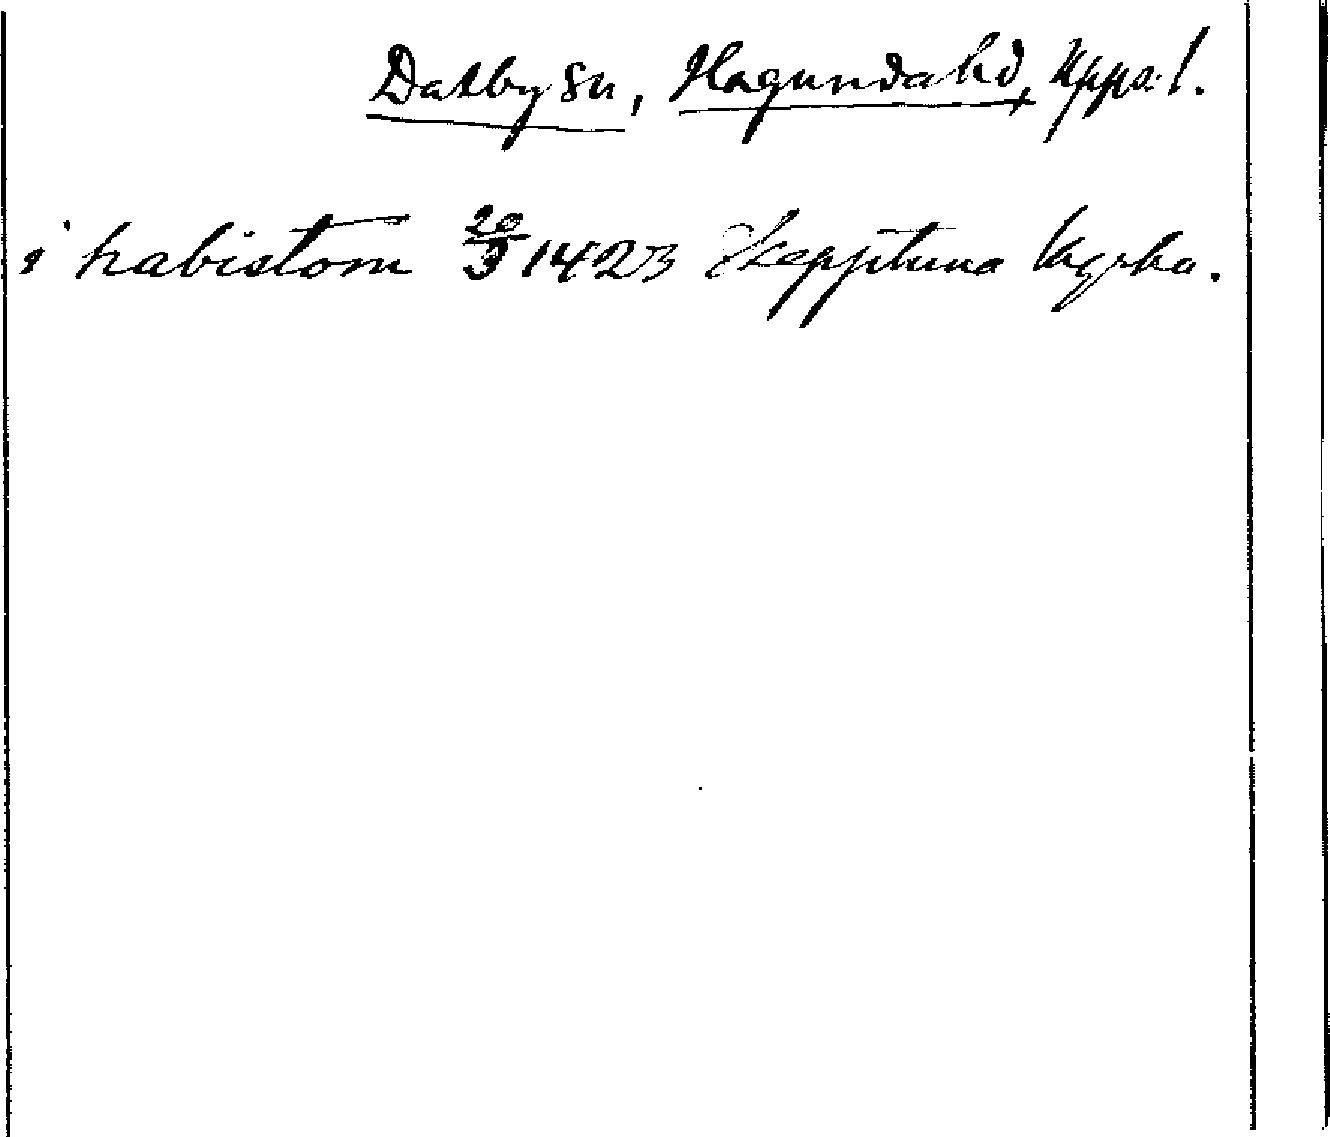 Dalby sn, Hagunda hd, Upps. l.
i habistom 20/3 1423 Skepptuna kyrka.